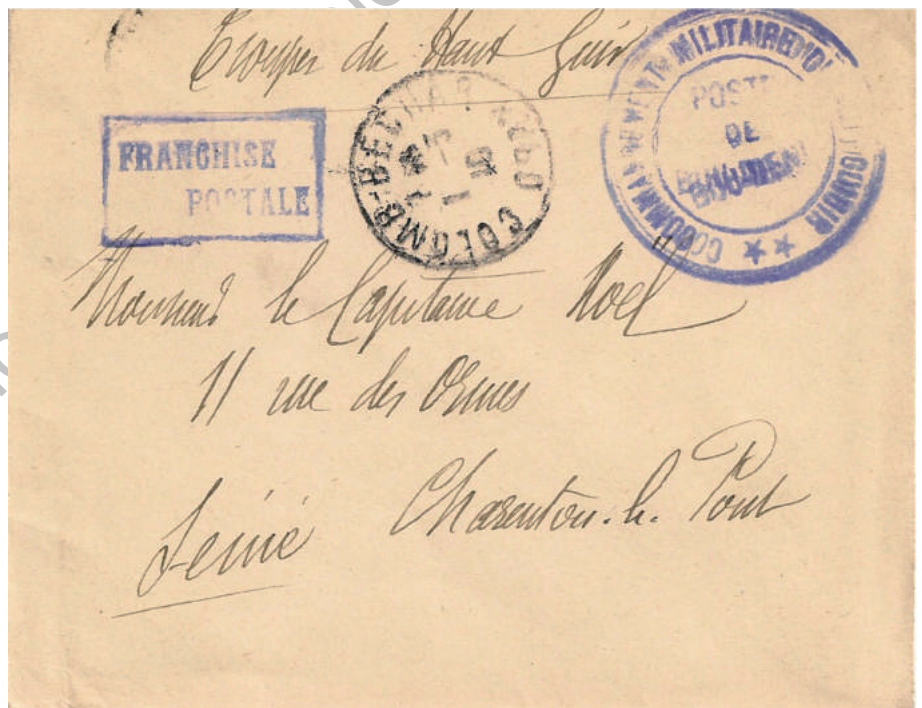 Troupes du Haut Guir
FRANCHISE
POSTALE
COLOMB-BECHAR
ORAN
COMMANDEMENT MILITAIRE
POSTE
DE
Monsieur le Capitaine Noël
11 rue des Ormes
Charenton-le-Pont
Seine